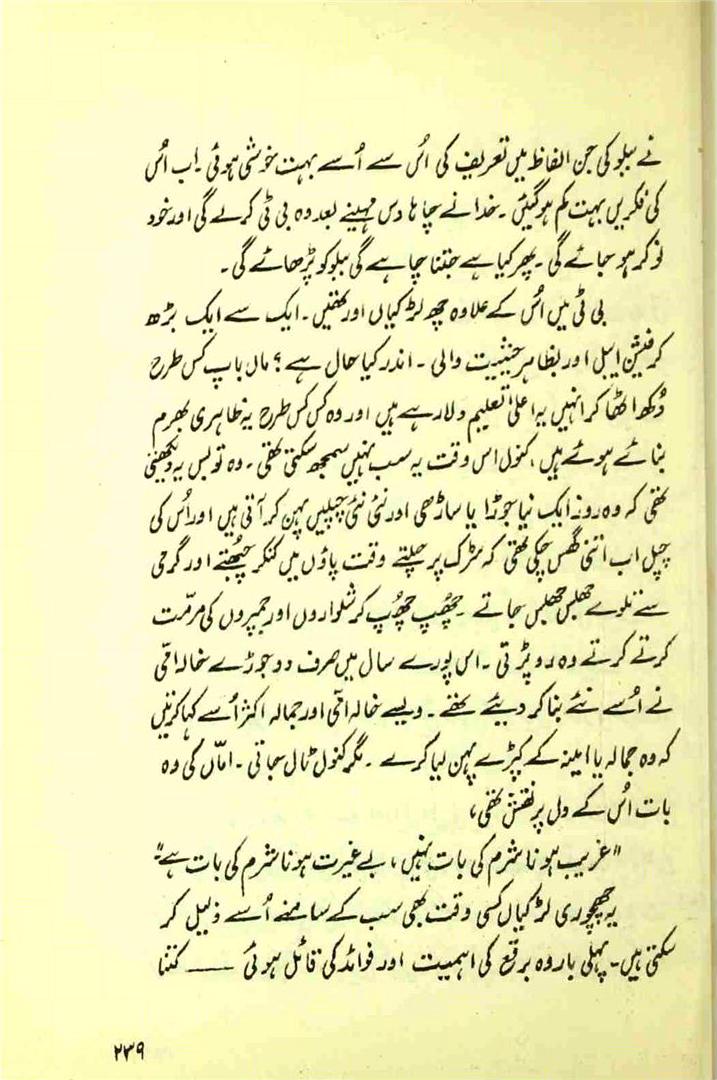 نے ببلو کی جن الفاظ میں تعریف کی اُس سے اُسے بہت خوشی ہوئی۔ اب اُس
کی فکریں بہت کم ہوگئیں۔ خدا نے چاہا دس مہینے بعد وہ بی ٹی کرلے گی اور خود
نوکر ہو جائے گی۔ پھر کیا ہے جتنا چاہے گی ببلو کو پڑھائے گی۔
بی ٹی میں اُس کے علاوہ چھ لڑکیاں اور تھیں۔ ایک سے ایک بڑھ
کر فیشن ایبل اور بظاہر حیثیت والی۔ اندر کیا حال ہے؟ ماں باپ کس طرح
دُکھ اٹھا کر انہیں یہ اعلیٰ تعلیم دلا رہے ہیں اور وہ کس کس طرح یہ ظاہری بھرم
بنائے ہوئے ہیں، کنول اس وقت یہ سب نہیں سمجھ سکتی تھی۔ وہ تو بس یہ دیکھتی
تھی کہ وہ روز ایک نیا جوڑا یا ساڑھی اور نئی نئی چپلیں پہن کر آتی ہیں اور اُس کی
چپل اب اتنی گھس چکی تھی کہ سڑک پر چلتے وقت پاؤں میں کنکر چُبھتے اور گرمی
سے تلوے جھلس جھلس جاتے۔ چُھپ چُھپ کر شلواروں اور جمپروں کی مرمّت
کرتے کرتے وہ رو پڑتی۔ اس پورے سال میں صرف دو جوڑے خالہ امّی
نے اُسے نئے بنا کر دیئے تھے۔ ویسے خالہ امّی اور جمالہ اکثر اُسے کہا کرتیں
کہ وہ جمالہ یا امینہ کے کپڑے پہن لیا کرے۔ مگر کنول ٹال جاتی۔ امّاں کی وہ
بات اُس کے دل پر نقش تھی،
"غریب ہونا شرم کی بات نہیں، بے غیرت ہونا شرم کی بات ہے"
یہ چھچھوری لڑکیاں کسی وقت بھی سب کے سامنے اُسے ذلیل کر
سکتی ہیں۔ پہلی بار وہ برقع کی اہمیت اور فوائد کی قائل ہوئی —— کتنا
۲۳۹